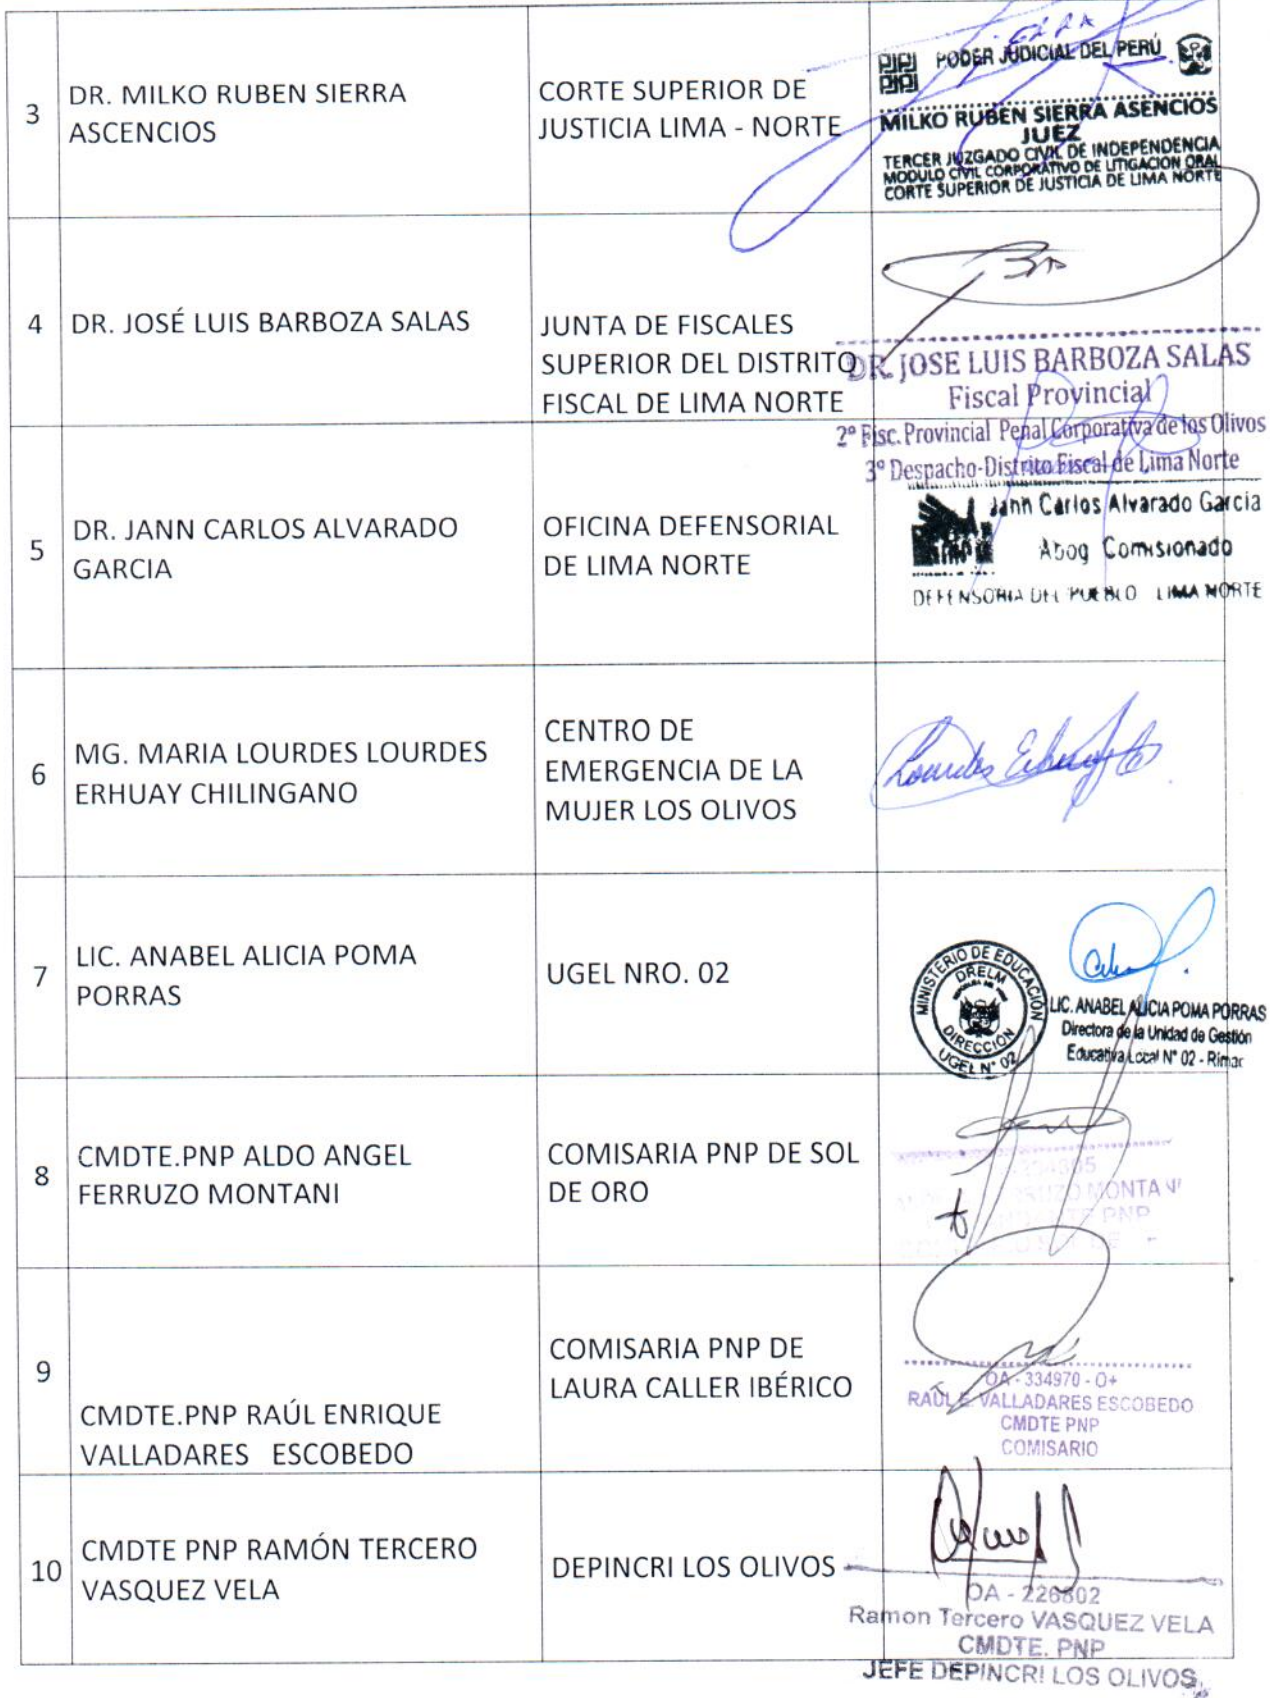 3
DR. MILKO RUBEN SIERRA
ASCENCIOS
CORTE SUPERIOR DE
JUSTICIA LIMA - NORTE
PODER JUDICIAL DEL PERÚ
MILKO RUBEN SIERRA ASENCIOS
JUEZ
TERCER JUZGADO CIVIL DE INDEPENDENCIA
MODULO CIVIL CORPORATIVO DE LITIGACION ORAL
CORTE SUPERIOR DE JUSTICIA DE LIMA NORTE
4
DR. JOSÉ LUIS BARBOZA SALAS
JUNTA DE FISCALES
SUPERIOR DEL DISTRITO
FISCAL DE LIMA NORTE
DR. JOSE LUIS BARBOZA SALAS
Fiscal Provincial
2º Fisc. Provincial Penal Corporativa de los Olivos
3º Despacho-Distrito Fiscal de Lima Norte
5
DR. JANN CARLOS ALVARADO
GARCIA
OFICINA DEFENSORIAL
DE LIMA NORTE
Jann Carlos Alvarado Garcia
Abog Comisionado
DEFENSORIA DEL PUEBLO LIMA NORTE
6
MG. MARIA LOURDES LOURDES
ERHUAY CHILINGANO
CENTRO DE
EMERGENCIA DE LA
MUJER LOS OLIVOS
Lourdes
7
LIC. ANABEL ALICIA POMA
PORRAS
UGEL NRO. 02
MINISTERIO DE EDUCACIÓN
DRELM
DIRECCIÓN
UGEL N° 02
LIC. ANABEL ALICIA POMA PORRAS
Directora de la Unidad de Gestión
Educativa Local N° 02 - Rimac
8
CMDTE.PNP ALDO ANGEL
FERRUZO MONTANI
COMISARIA PNP DE SOL
DE ORO
MONTANI
PNP
9
CMDTE.PNP RAÚL ENRIQUE
VALLADARES ESCOBEDO
COMISARIA PNP DE
LAURA CALLER IBÉRICO
OA - 334970 - O+
RAÚL E. VALLADARES ESCOBEDO
CMDTE PNP
COMISARIO
10
CMDTE PNP RAMÓN TERCERO
VASQUEZ VELA
DEPINCRI LOS OLIVOS
OA - 226802
Ramon Tercero VASQUEZ VELA
CMDTE. PNP
JEFE DEPINCRI LOS OLIVOS